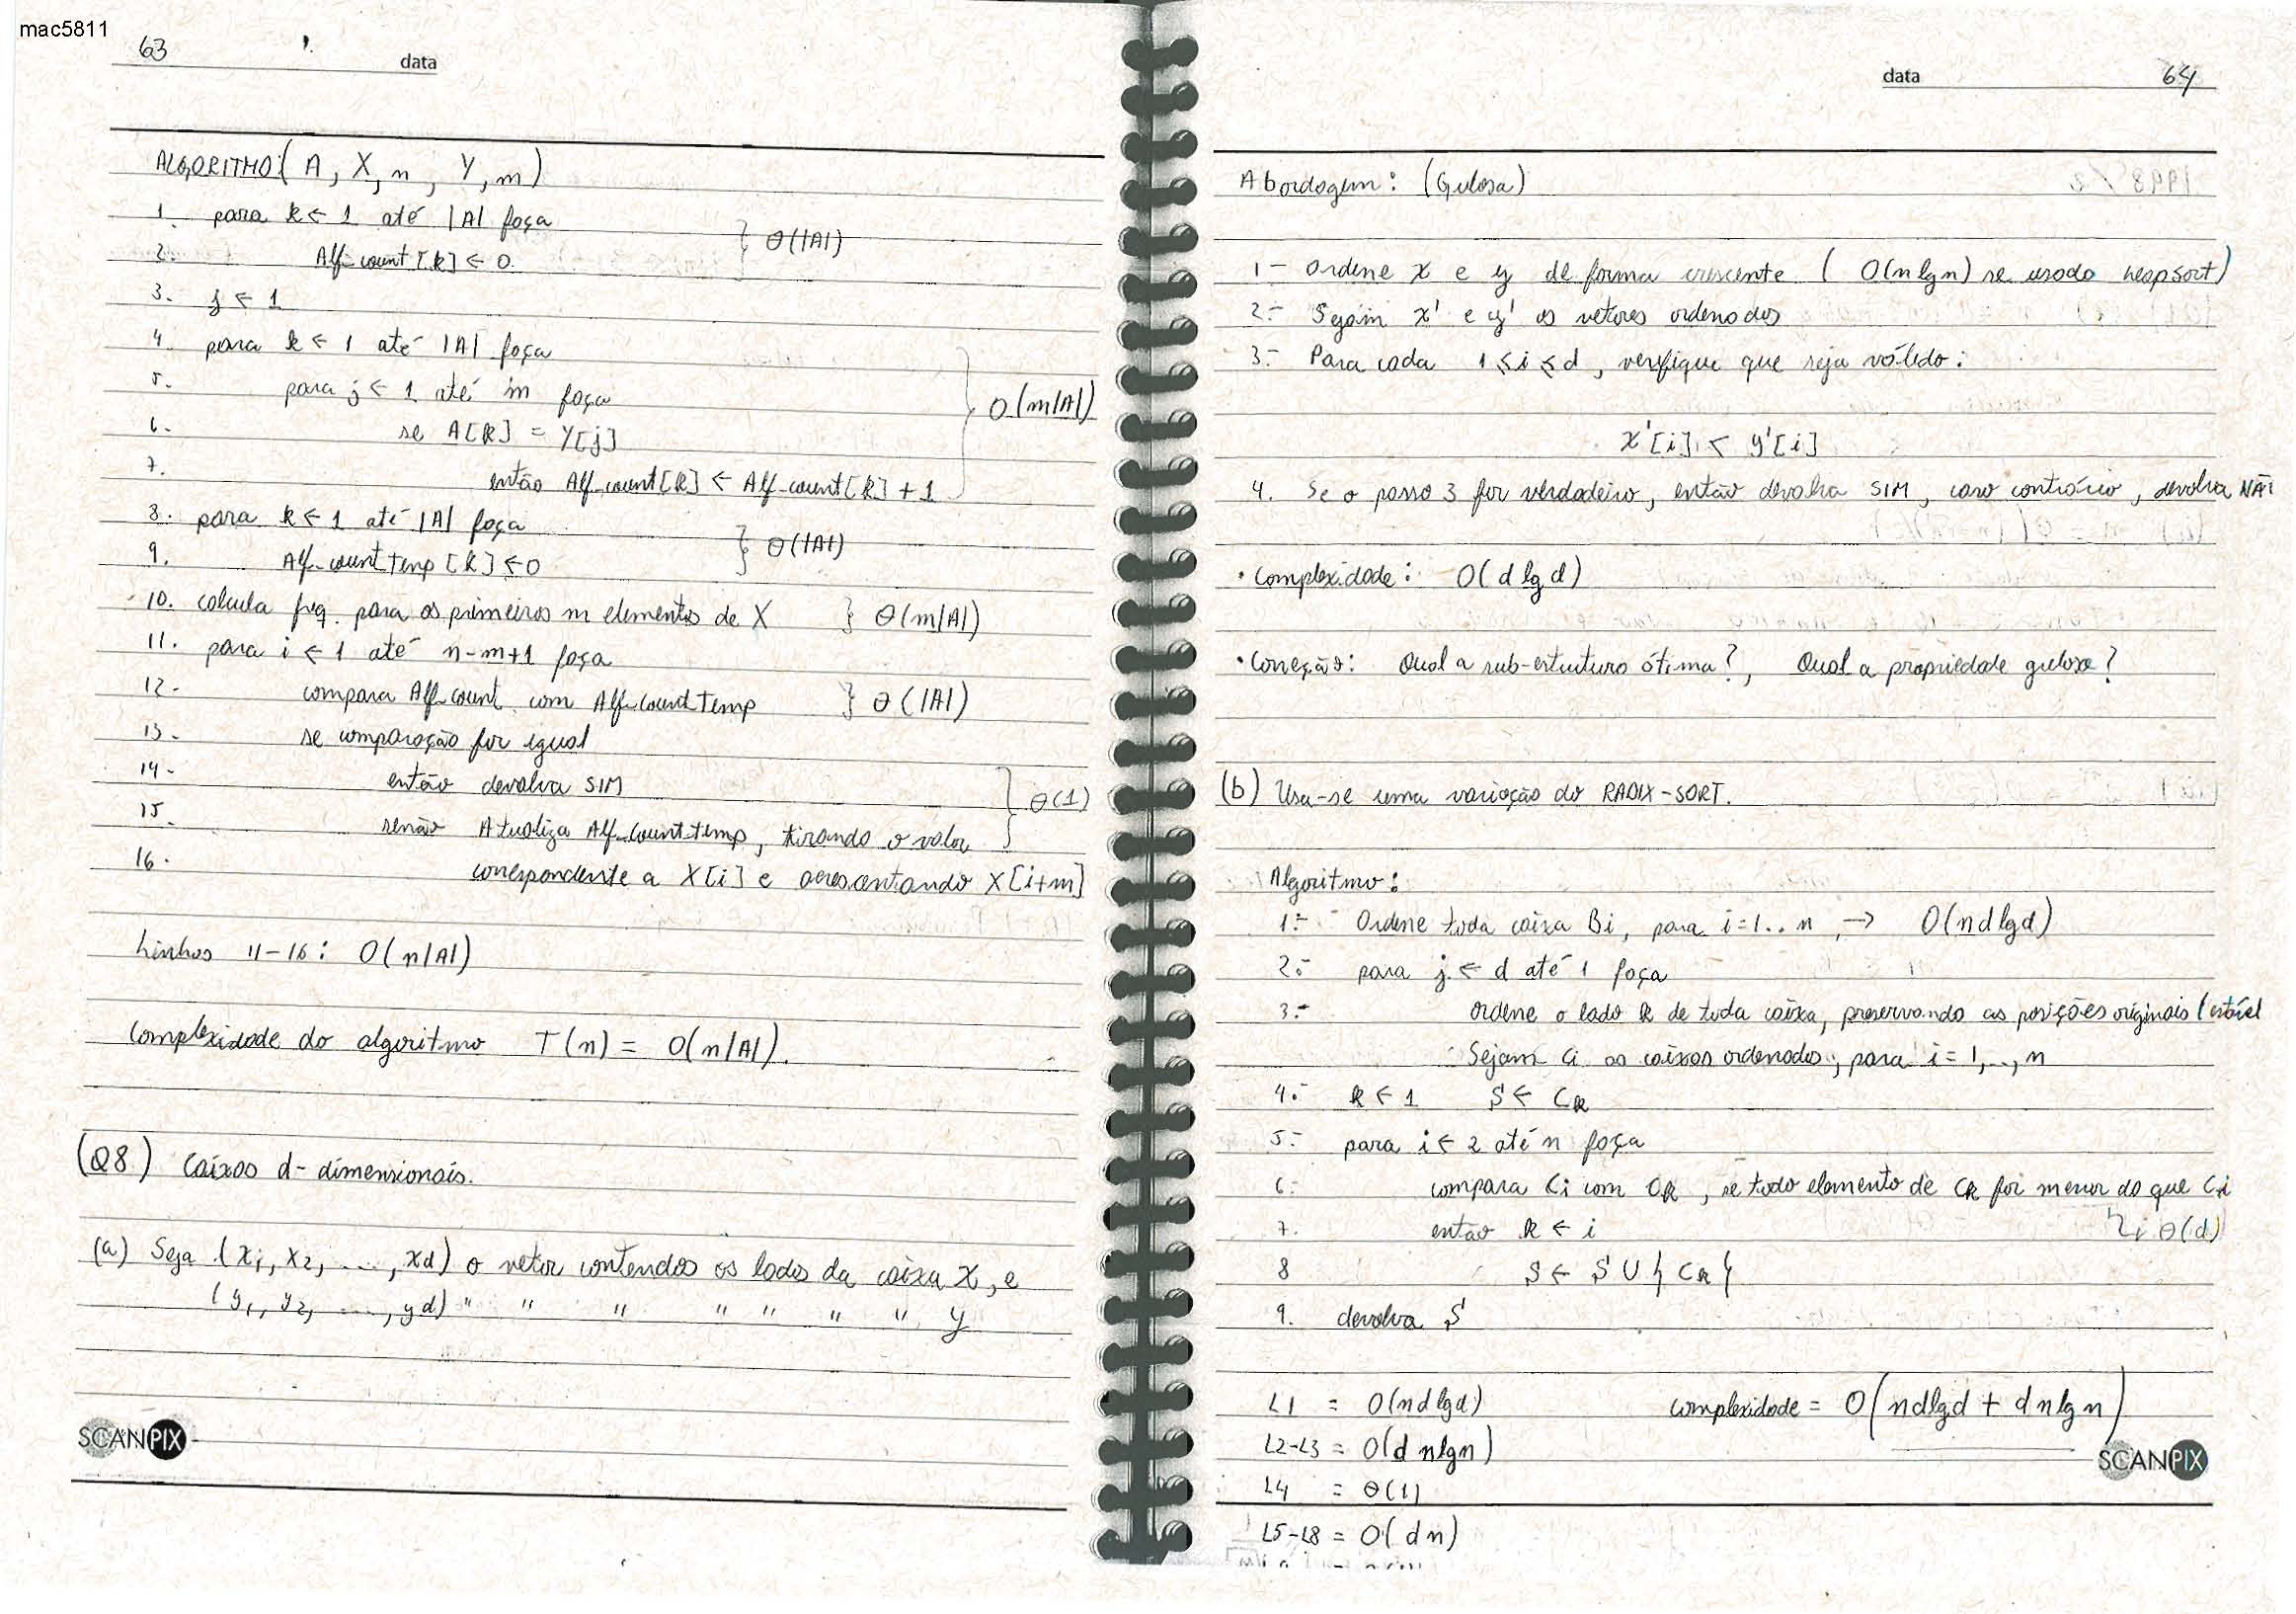 mac5811
63
data
ALGORITMO(A, X, n, Y, m)
1. para k ← 1 até |A| faça
2. Alf-count[k] ← 0
} Θ(|A|)
3. j ← 1
4. para k ← 1 até |A| faça
5. para j ← 1 até m faça
6. se A[k] = Y[j]
7. então Alf-count[k] ← Alf-count[k] + 1
} O(m|A|)
8. para k ← 1 até |A| faça
9. Alf-countTemp[k] ← 0
} Θ(|A|)
10. calcula freq. para os primeiros m elementos de X } Θ(m|A|)
11. para i ← 1 até n-m+1 faça
12. compara Alf-count com Alf-countTemp } Θ(|A|)
13. se comparação for igual
14. então devolva SIM
15. senão Atualiza Alf-counttemp, tirando o valor
} Θ(1)
16. correspondente a X[i] e acrescentando X[i+m]
Linhas 11-16: O(n|A|)
Complexidade do algoritmo T(n) = O(n|A|).
(Q8) Caixas d-dimensionais.
(a) Seja (x1, x2, ..., xd) o vetor contendo os lados da caixa X, e
(y1, y2, ..., yd) " " " " " " " y
SCANPIX
data 64
Abordagem: (Gulosa)
1- Ordene x e y de forma crescente ( O(n lg n) se usado heapsort)
2- Sejam x' e y' os vetores ordenados
3- Para cada 1 ≤ i ≤ d, verifique que seja válido:
x'[i] < y'[i]
4. Se o passo 3 for verdadeiro, então devolva SIM, caso contrário, devolva NÃ
• Complexidade: O(d lg d)
• Correção: Qual a sub-estrutura ótima?, Qual a propriedade gulosa?
(b) Usa-se uma variação do RADIX-SORT.
Algoritmo:
1- Ordene toda caixa Bi, para i=1..n, → O(nd lg d)
2- para j ← d até 1 faça
3- ordene o lado k de toda caixa, preservando as posições originais (estável
Sejam Ci as caixas ordenadas, para i = 1, .., n
4- k ← 1 S ← Ck
5- para i ← 2 até n faça
6- compara Ci com Ck, se todo elemento de Ck for menor do que Ci
7. então k ← i
↳ Θ(d)
8 S ← S ∪ { Ck }
9. devolva S
L1 = O(nd lg d)
complexidade = O(nd lg d + dn lg n)
L2-L3 = O(d n lg n)
SCANPIX
L4 = Θ(1)
L5-L8 = O(dn)